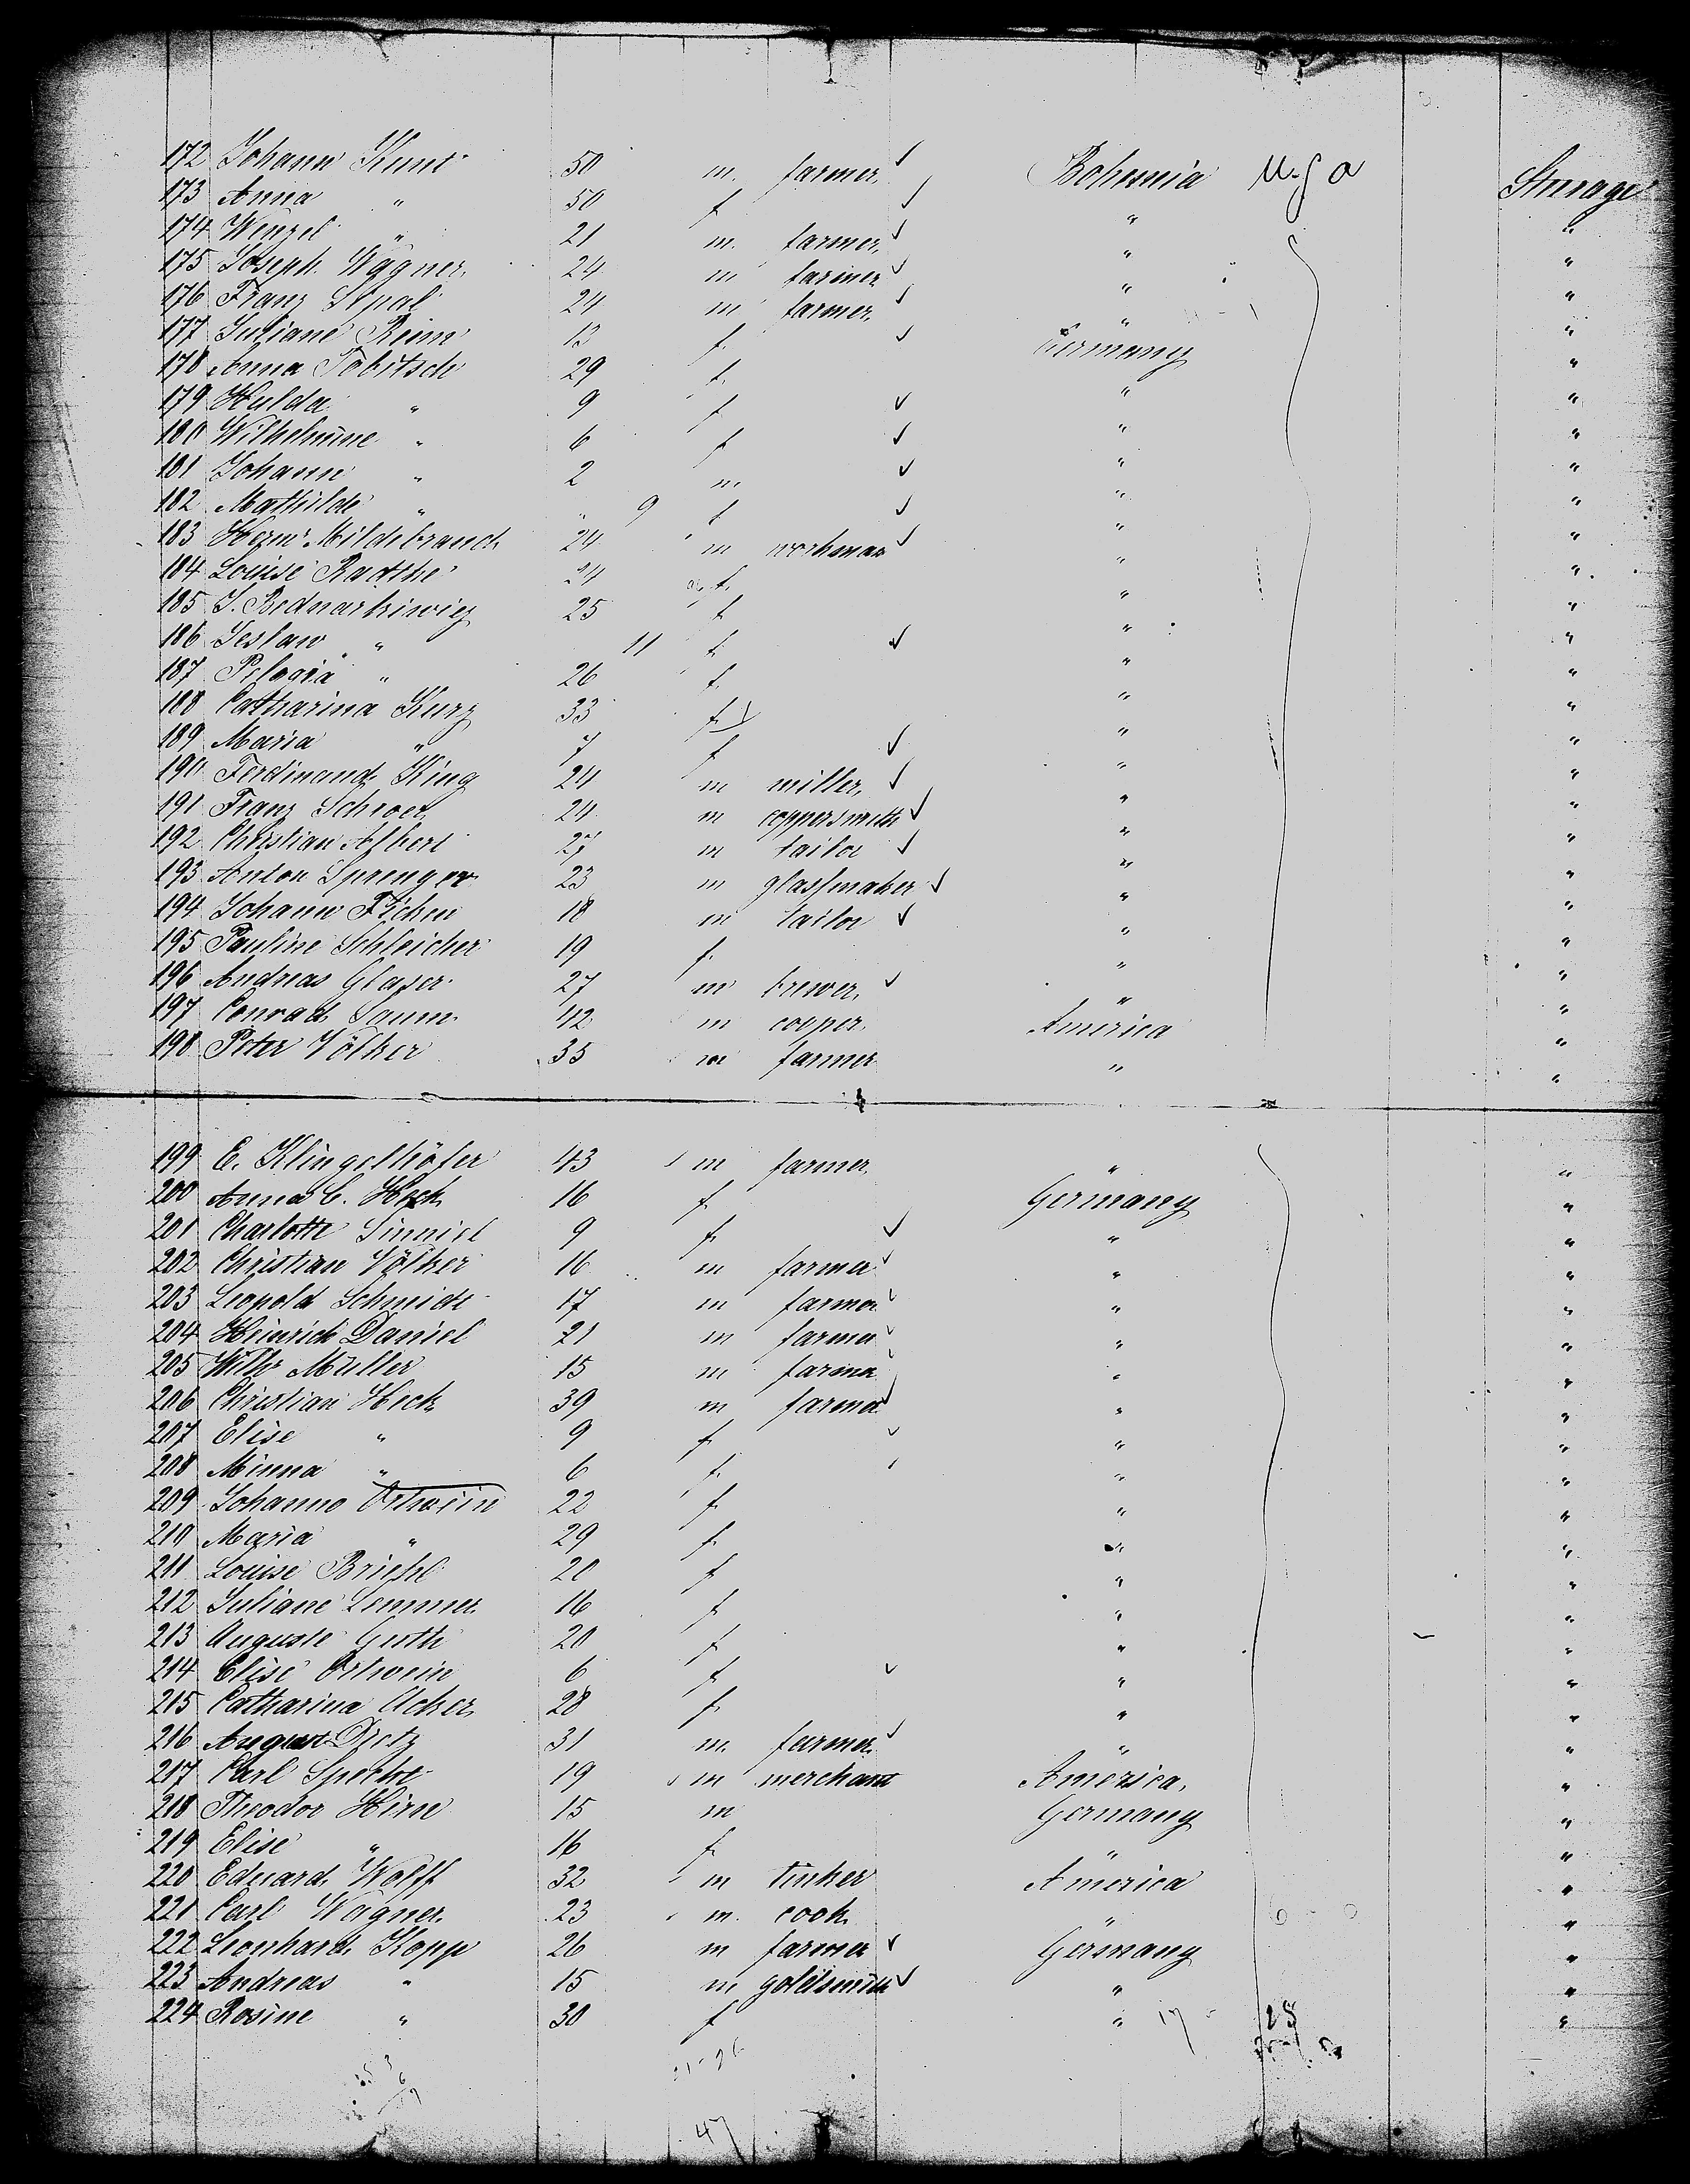 172 Johann Kunt 50 m. farmer ✓ Bohemia U. S. a Steerage
173 Anna " 50 f ✓ " "
174 Wenzel " 21 m. farmer ✓ " "
175 Joseph Wagner 24 m farmer ✓ " "
176 Franz 24 m farmer ✓ " "
177 Juliane Reim 13 f. ✓ Germany "
178 Anna Tobitsch 29 f. " "
179 Hulda " 9 f ✓ " "
180 Wilhelmine " 6 f ✓ " "
181 Johann " 2 m ✓ " "
182 Mathilde " " 9 f ✓ " "
183 Herm. Mildebrandt 24 m workman ✓ " "
184 Louise Radtke 24 f. " "
185 J. Bednarkiwicz 25 f " "
186 Teslaw " 11 f. ✓ " "
187 Pelagia " 26 f. " "
188 Catharina Kurz 33 f. " "
189 Maria " 7 f ✓ " "
190 Ferdinand King 24 m miller ✓ " "
191 Franz Schroer 24 m coppersmith ✓ " "
192 Christian Albert 27 m tailor ✓ " "
193 Anton Sprenger 23 m glassmaker ✓ " "
194 Johann Ficken 18 m tailor ✓ " "
195 Pauline Schleicher 19 f. " "
196 Andreas Glaser 27 m brewer ✓ " "
197 Conrad Saum 42 m cooper America "
198 Peter Völker 35 m farmer " "
199 E. Klingelhöfer 43 m farmer " "
200 Anna C. Heck 16 f. Germany "
201 Charlotte 9 f. ✓ " "
202 Christian Völker 16 m farmer ✓ " "
203 Leopold Schmidt 17 m farmer ✓ " "
204 Heinrich Daniel 21 m farmer ✓ " "
205 Wilh. Müller 15 m farmer ✓ " "
206 Christian Heck 39 m farmer ✓ " "
207 Elise " 9 f. ✓ " "
208 Minna " 6 f. ✓ " "
209 Johanne Ortwein 22 f " "
210 Maria " 29 f. " "
211 Louise 20 f " "
212 Juliane Lemmer 16 f. " "
213 Auguste Guth 20 f. " "
214 Elise Ortwein 6 f. ✓ " "
215 Catharina Acker 28 f. " "
216 August Dietz 31 m. farmer ✓ " "
217 Carl 19 m merchant America. "
218 Theodor Hirn 15 m Germany "
219 Elise " 16 f. " "
220 Eduard Wolff 32 m tinker America "
221 Carl Wagner 23 m. cook " "
222 Leonhard Kopp 26 m farmer ✓ Germany "
223 Andreas " 15 m goldsmith ✓ " "
224 Rosine " 30 f " "
47